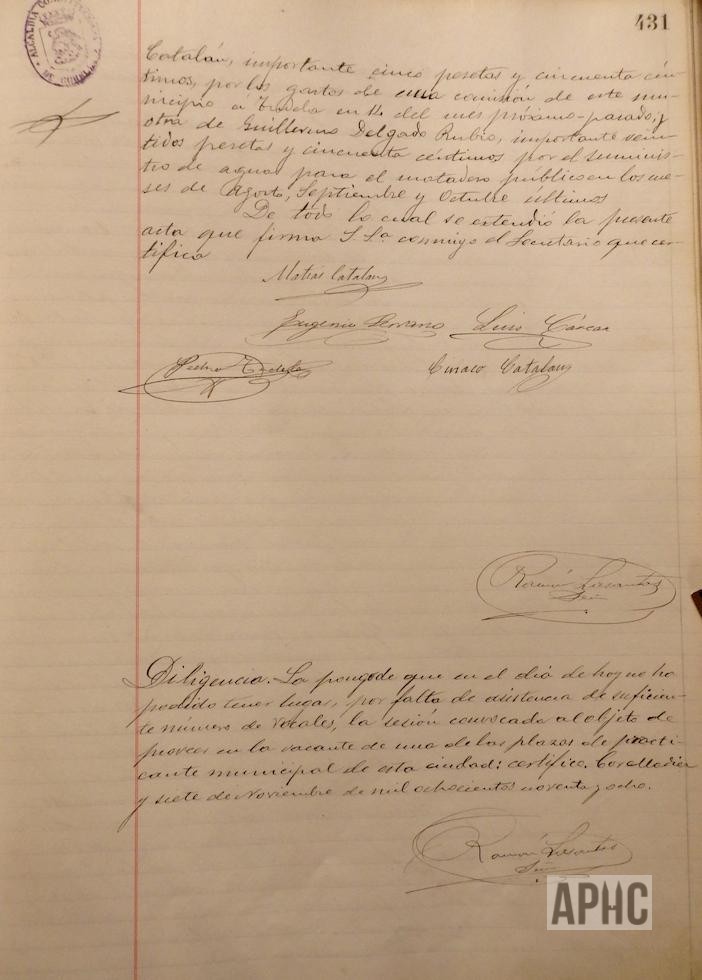 431
ALCALDIA CONSTITUCIONAL
DE CORELLA
Catalán, importante cinco pesetas y cincuenta cén-
timos, por los gastos de una comisión de este mu-
nicipio á Tudela en 14 del mes próximo-pasado, y
otra de Guillermo Delgado Rubio, importante vein-
tidos pesetas y cincuenta centimos por el suminis-
tro de aguas para el matadero público en los me-
ses de Agosto, Septiembre y Octubre últimos
De todo lo cual se extendió la presente
acta que firma S.Sª conmigo el Secretario que cer-
tifica
Matías Catalan
Eugenio Serrano Luis
Pedro Tudela Ciriaco Catalan
Ramón
Srio
Diligencia. La pongo de que en el día de hoy no ha
podido tener lugar, por falta de asistencia de suficien-
te número de vocales, la sesión convocada al objeto de
proveer en la vacante de una de las plazas de practi-
cante municipal de esta ciudad: certifico. Corella diez
y siete de Noviembre de mil ochocientos noventa y ocho.
Ramón
Srio
APHC